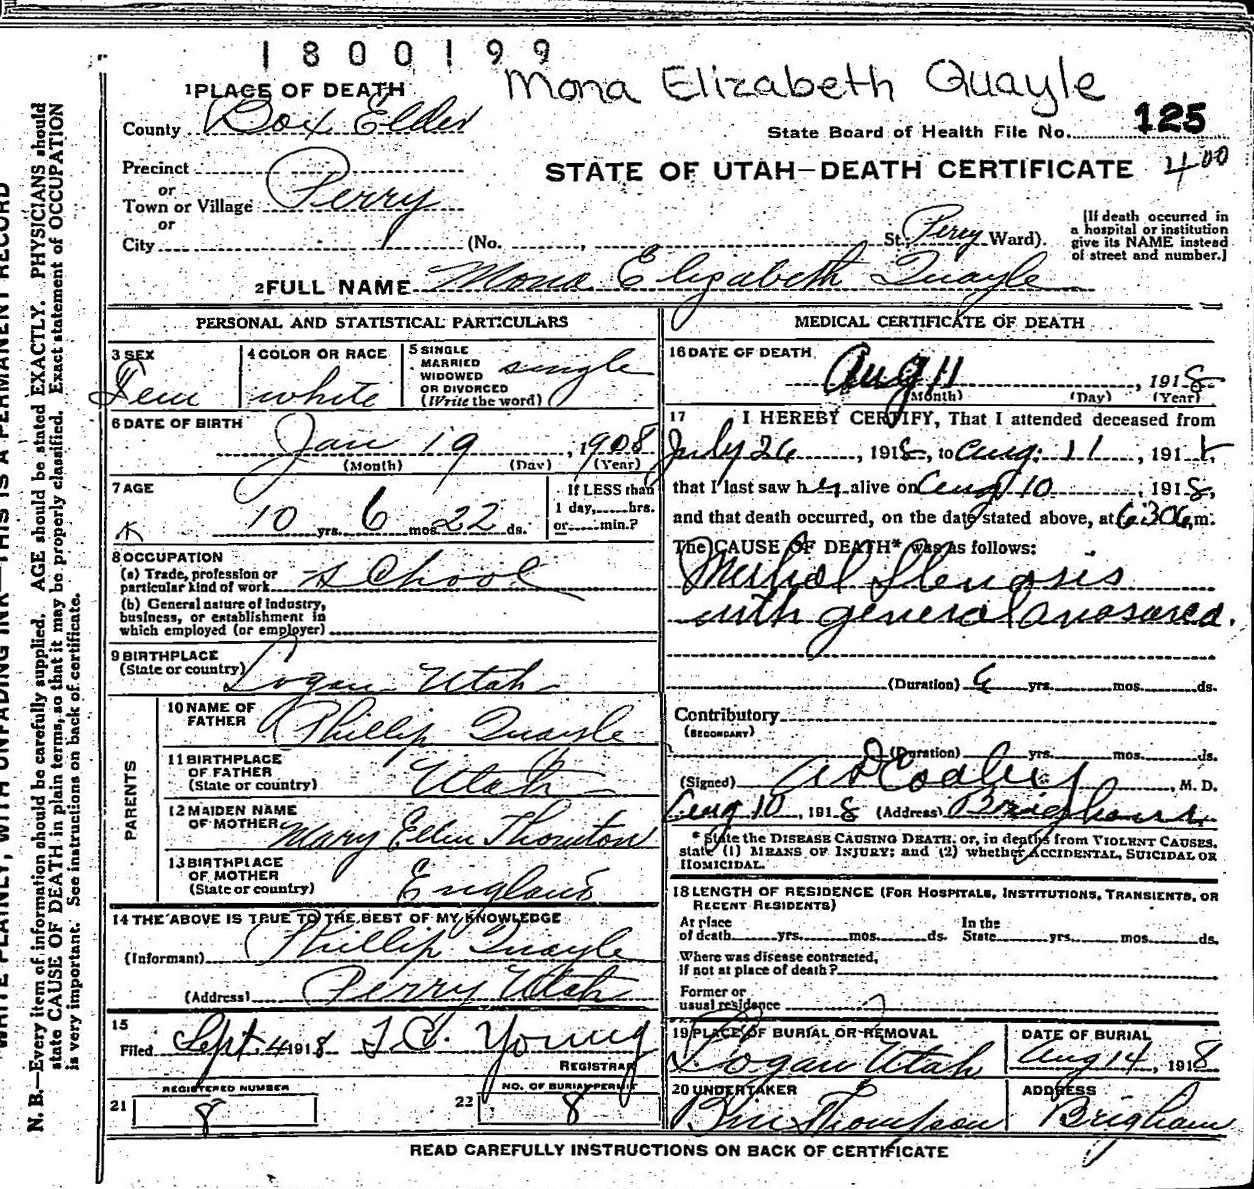 1800199
Mona Elizabeth Quayle
1 PLACE OF DEATH
County Box Elder
State Board of Health File No. 125
Precinct
or
Town or Village Perry
or
City (No. , St; Perry Ward).
STATE OF UTAH—DEATH CERTIFICATE 400
[If death occurred in
a hospital or institution
give its NAME instead
of street and number.]
2 FULL NAME Mona Elizabeth Quayle
PERSONAL AND STATISTICAL PARTICULARS
3 SEX
Fem
4 COLOR OR RACE
white
5 SINGLE
MARRIED
WIDOWED
OR DIVORCED
(Write the word)
single
6 DATE OF BIRTH
Jan 19, 1908
(Month) (Day) (Year)
7 AGE
10 yrs. 6 mos. 22 ds.
If LESS than
1 day,......hrs.
or......min.?
8 OCCUPATION
(a) Trade, profession or
particular kind of work school
(b) General nature of industry,
business, or establishment in
which employed (or employer)
9 BIRTHPLACE
(State or country) Logan Utah
PARENTS
10 NAME OF
FATHER Phillip Quayle
11 BIRTHPLACE
OF FATHER
(State or country) Utah
12 MAIDEN NAME
OF MOTHER Mary Ellen Thornton
13 BIRTHPLACE
OF MOTHER
(State or country) England
14 THE ABOVE IS TRUE TO THE BEST OF MY KNOWLEDGE
(Informant) Phillip Quayle
(Address) Perry Utah
15
Filed Sept. 4 1918 Young
REGISTRAR
REGISTERED NUMBER
21 8
NO. OF BURIAL PERMIT
22 8
MEDICAL CERTIFICATE OF DEATH
16 DATE OF DEATH
Aug 11, 1918
(Month) (Day) (Year)
17 I HEREBY CERTIFY, That I attended deceased from
July 26, 1918, to Aug. 11, 191
that I last saw her alive on Aug 10, 1918,
and that death occurred, on the date stated above, at m.
The CAUSE OF DEATH* was as follows:
Mitral Stenosis
with general anasarca.
(Duration) yrs. mos. ds.
Contributory
(SECONDARY)
(Duration) yrs. mos. ds.
(Signed) M. D.
Aug 10, 1918 (Address) Brigham
* State the DISEASE CAUSING DEATH, or, in deaths from VIOLENT CAUSES,
state (1) MEANS OF INJURY; and (2) whether ACCIDENTAL, SUICIDAL OR
HOMICIDAL.
18 LENGTH OF RESIDENCE (FOR HOSPITALS, INSTITUTIONS, TRANSIENTS, OR
RECENT RESIDENTS)
At place
of death yrs. mos. ds.
In the
State yrs. mos. ds.
Where was disease contracted,
if not at place of death?
Former or
usual residence
19 PLACE OF BURIAL OR REMOVAL
Logan Utah
DATE OF BURIAL
Aug 14, 1918
20 UNDERTAKER
Thompson
ADDRESS
Brigham
READ CAREFULLY INSTRUCTIONS ON BACK OF CERTIFICATE
WRITE PLAINLY, WITH UNFADING INK—THIS IS A PERMANENT RECORD
N. B.—Every item of information should be carefully supplied. AGE should be stated EXACTLY. PHYSICIANS should
state CAUSE OF DEATH in plain terms, so that it may be properly classified. Exact statement of OCCUPATION
is very important. See instructions on back of certificate.